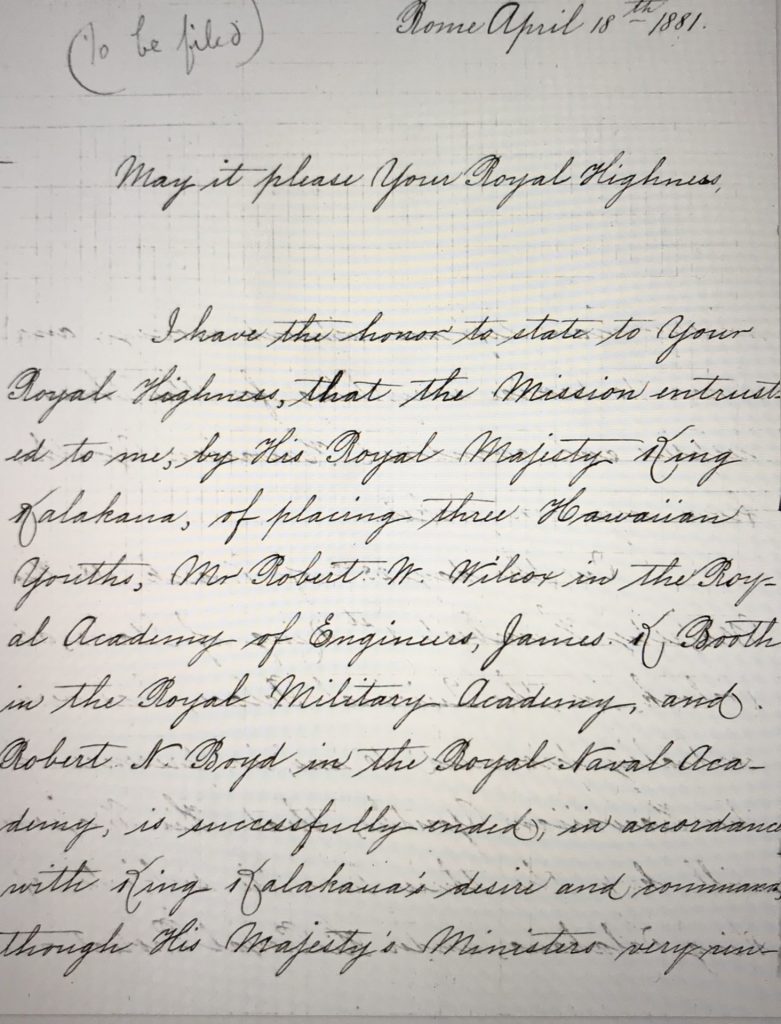 (To be filed)
Rome April 18th 1881.
May it please Your Royal Highness,
I have the honor to state to Your
Royal Highness, that the Mission entrust-
ed to me, by His Royal Majesty King
Kalakaua, of placing three Hawaiian
Youths, Mr Robert W. Wilcox in the Roy-
al Academy of Engineers, James K Booth
in the Royal Military Academy, and
Robert N. Boyd in the Royal Naval Aca-
demy, is successfully ended, in accordance
with King Kalakaua's desire and command,
though His Majesty's Ministers very un-